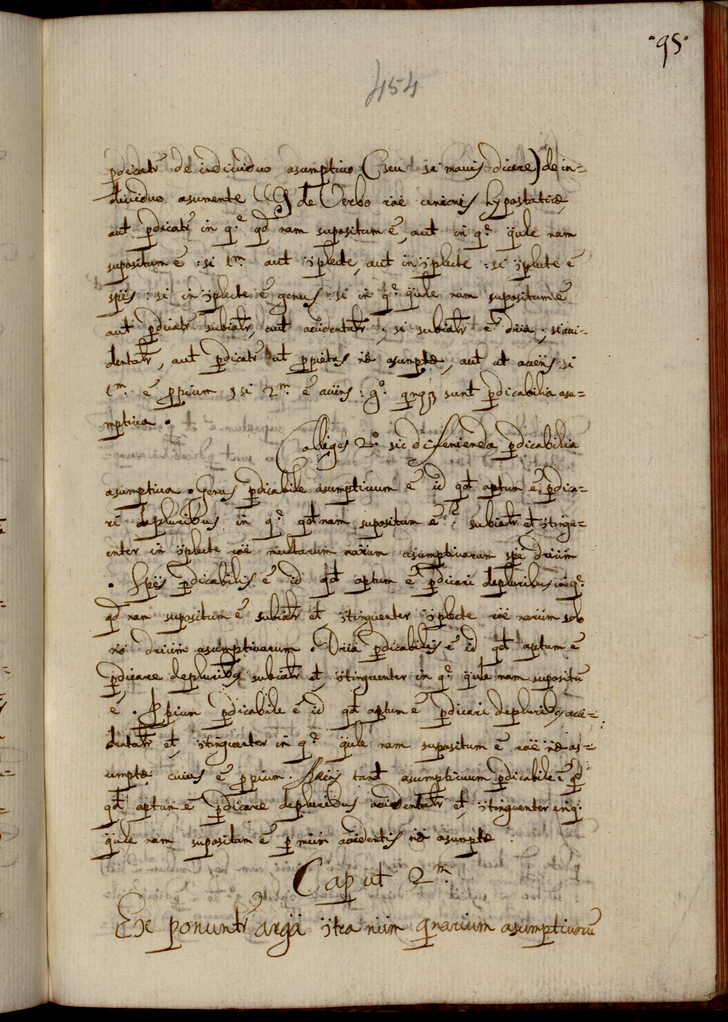 ·95·
454
pdicatr de individuo asumptivo (seu si mavis dicere) de in-
dividuo asumente de Verbo roē unionis hypostaticæ,
aut pdicatr in q.e qd nam supositum ē, aut in q.e qule nam
supositum ē : si 1.m aut iplecte, aut in iplecte : si iplecte ē
spēs : si in iplecte ē genus : si in q.e qule nam supositum ē
aut pdicatr subialr, aut accidentalr ; si subialr ē dria ; si aci-
dentalr, aut pdicatr ut pprietas nē asumptæ, aut ut accns : si
1.m ē pprium, si 2.m ē accns : g.o qnqz sunt pdicabilia asu-
mptiva .
Colliges 2.o sic difenienda pdicabilia
asumptiva . Genus pdicabile asumptivum ē id qd aptum ē pdica-
ri depluribus in q.e qd nam supositum ē subialr et, itinge-
enter in iplecte roē multarum narum asumptivarum spē driūm
. Spēs pdicabilis ē id qd aptum ē pdicari depluribus in q.e
qd nam supositum ē subialr et, itinguenter iplecte roē narūm solo
n.o driūm asumptivarum . Dria pdicabilis ē id qd aptum ē
pdicare depluribq subialr et, itinguenter in q.e qule nam supositū
ē . Pprium pdicabile ē id qd aptum ē pdicari depluribq acci-
dentalr et, itinguenter in q.e qule nam supositum ē roē nē as-
umptæ cuius ē pprium . Accns tant asumptivum pdicabile ē
qd aptum ē pdicare depluribus accidentalr et, itinguenter in q.
qule nam supositum ē p accidentis nē asumptæ .
Caput 2.m
Exponuntr argā itra nūm qnarium asumptivorū